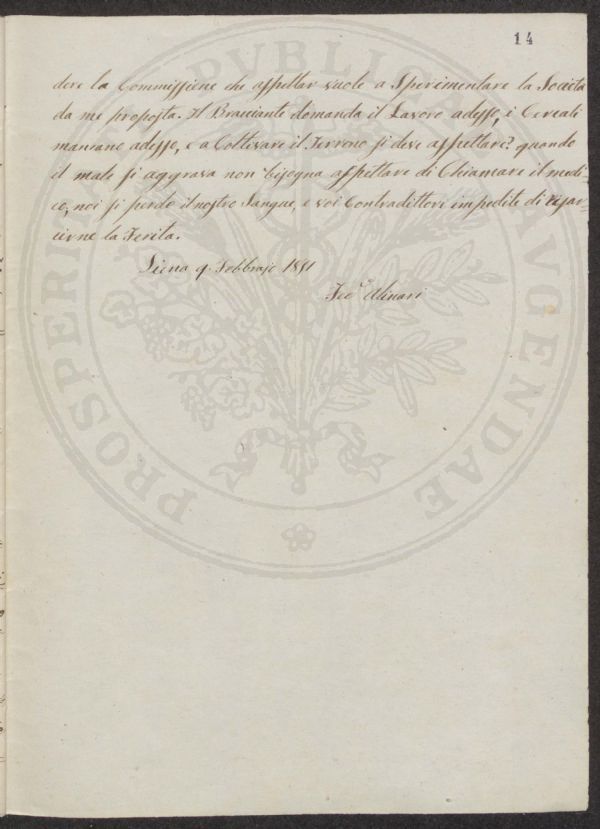 14
dere la Commissione che aspettar vuole a Sperimentare la Società
da me proposta. Il Bracciante domanda il Lavoro adesso, i Cereali
mancano adesso, e a Coltivare il Terreno si deve aspettare? quando
il male si aggrava non bisogna aspettare di Chiamare il medi-
co, noi si perde il nostro Sangue, e voi Contradittori impedite di risar-
cirne la Ferita.
Siena 9. Febbrajo 1851
Alinari
PVBLICAE
PROSPERITATI AVGENDAE